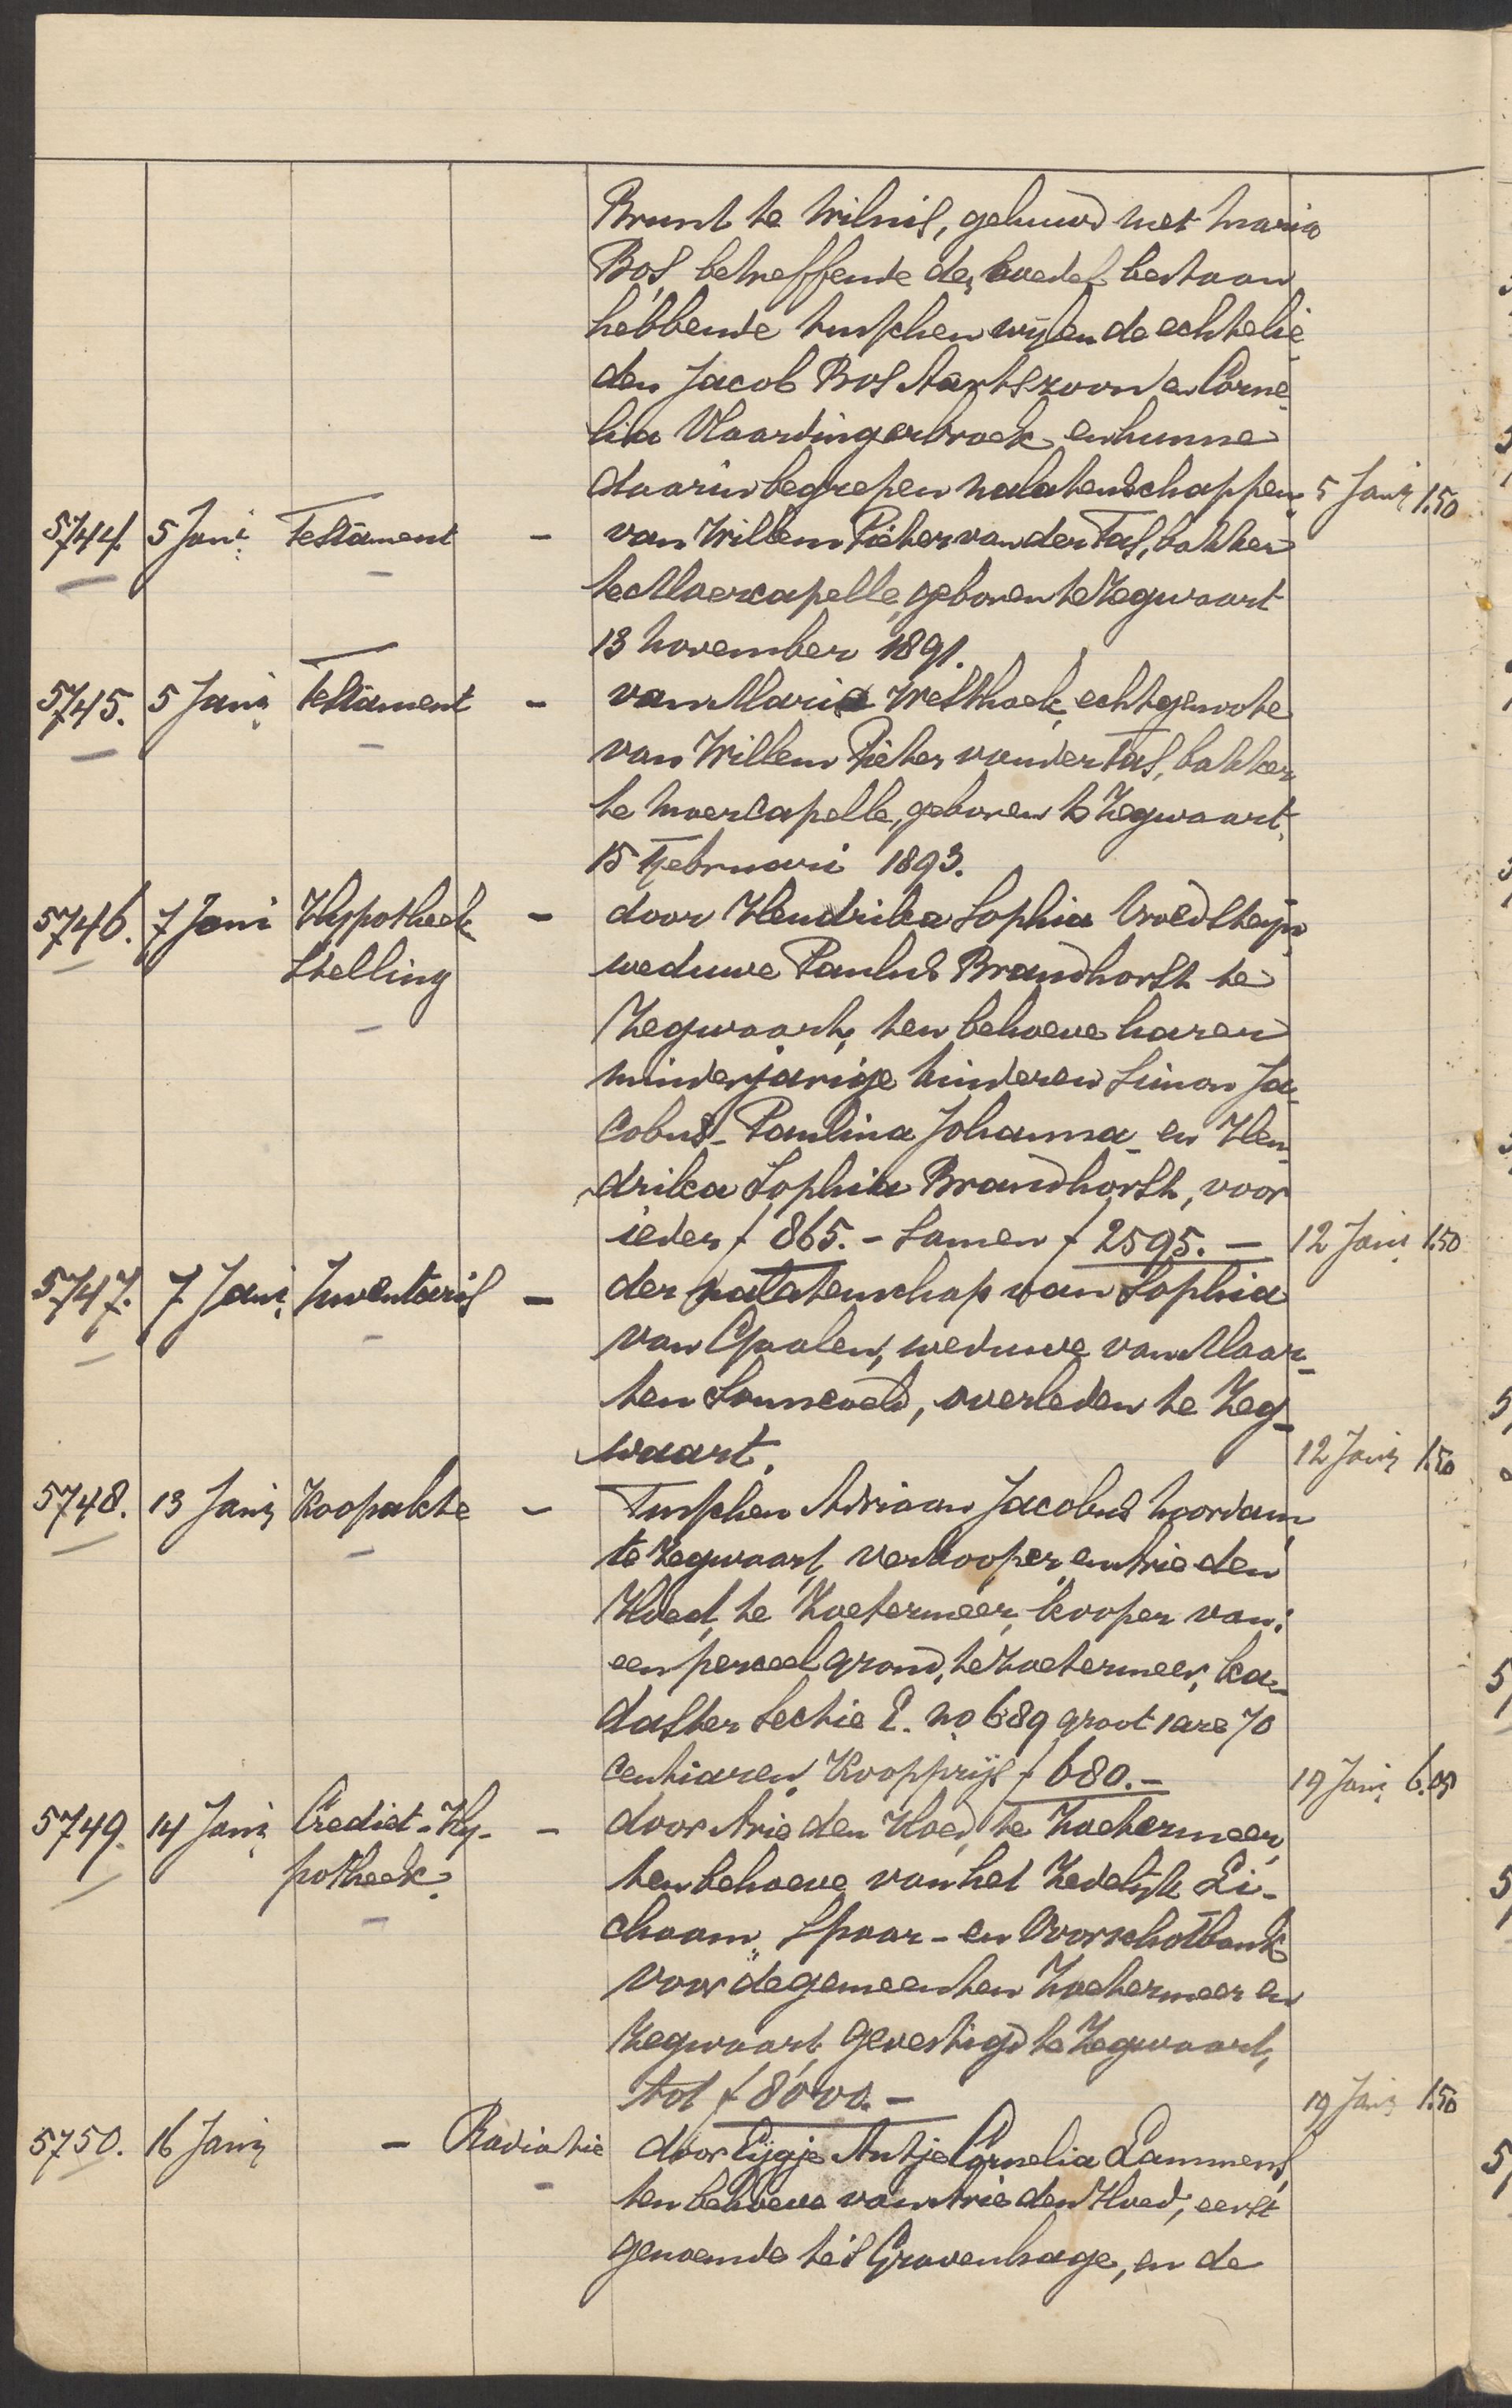 Brunt te Wilnis, gehuwd met Maria
Bos, betreffende den boedel bestaan
hebbende tusschen wijlen de echtelie-
den Jacob Bos Aartszoon en Corne-
lia Vlaardingerbroek en hunne
daarin begrepen nalatenschappen. 5 Juni 1.50
5744. 5 Juni Testament - van Willem Pieter van der Tas, bakker
te Moercapelle, geboren te Zegwaart
13 November 1891.
5745. 5 Juni Testament - van Maria Westhoek, echtgenoote
van Willem Pieter van der Tas, bakker
te Moercapelle, geboren te Zegwaart,
15 Februari 1893.
5746. 7 Juni Hypotheek - door Hendrika Sophia
Stelling weduwe Paulus Brandhorst te
Zegwaart, ten behoeve harer
minderjarige kinderen Simon Ja-
cobus- Paulina Johanna- en Hen-
drika Sophia Brandhorst, voor
ieder f 865.- samen f 2595.- 12 Juni 1.50
5747. 7 Juni Inventaris - der nalatenschap van Sophia
van weduwe van Maar-
ten Sonneveld, overleden te Zeg-
waart. 12 Juni 1.50
5748. 13 Juni Koopakte - Tusschen Adriaan Jacobus Noordam
te Zegwaart, verkooper, en Arie den
Hoed, te Zoetermeer, kooper van:
een perceel grond, te Zoetermeer, ka-
daster Sectie E. no 689 groot 1 are 70
centiaren. Koopprijs f 680.- 19 Juni 6.05
5749. 14 Juni Crediet-Hy- - door Arie den Hoed, te Zoetermeer,
potheek. ten behoeve van het Zedelijk Li-
chaam „Spaar- en Voorschotbank
voor de gemeenten Zoetermeer en
Zegwaart, gevestigd te Zegwaart,
tot f 8000.- 19 Juni 1.50
5750. 16 Juni - Radiatie door Eijgje Antje Cornelia Lammens,
ten behoeve van Arie den Hoed, eerst
genoemde te 's Gravenhage, en de